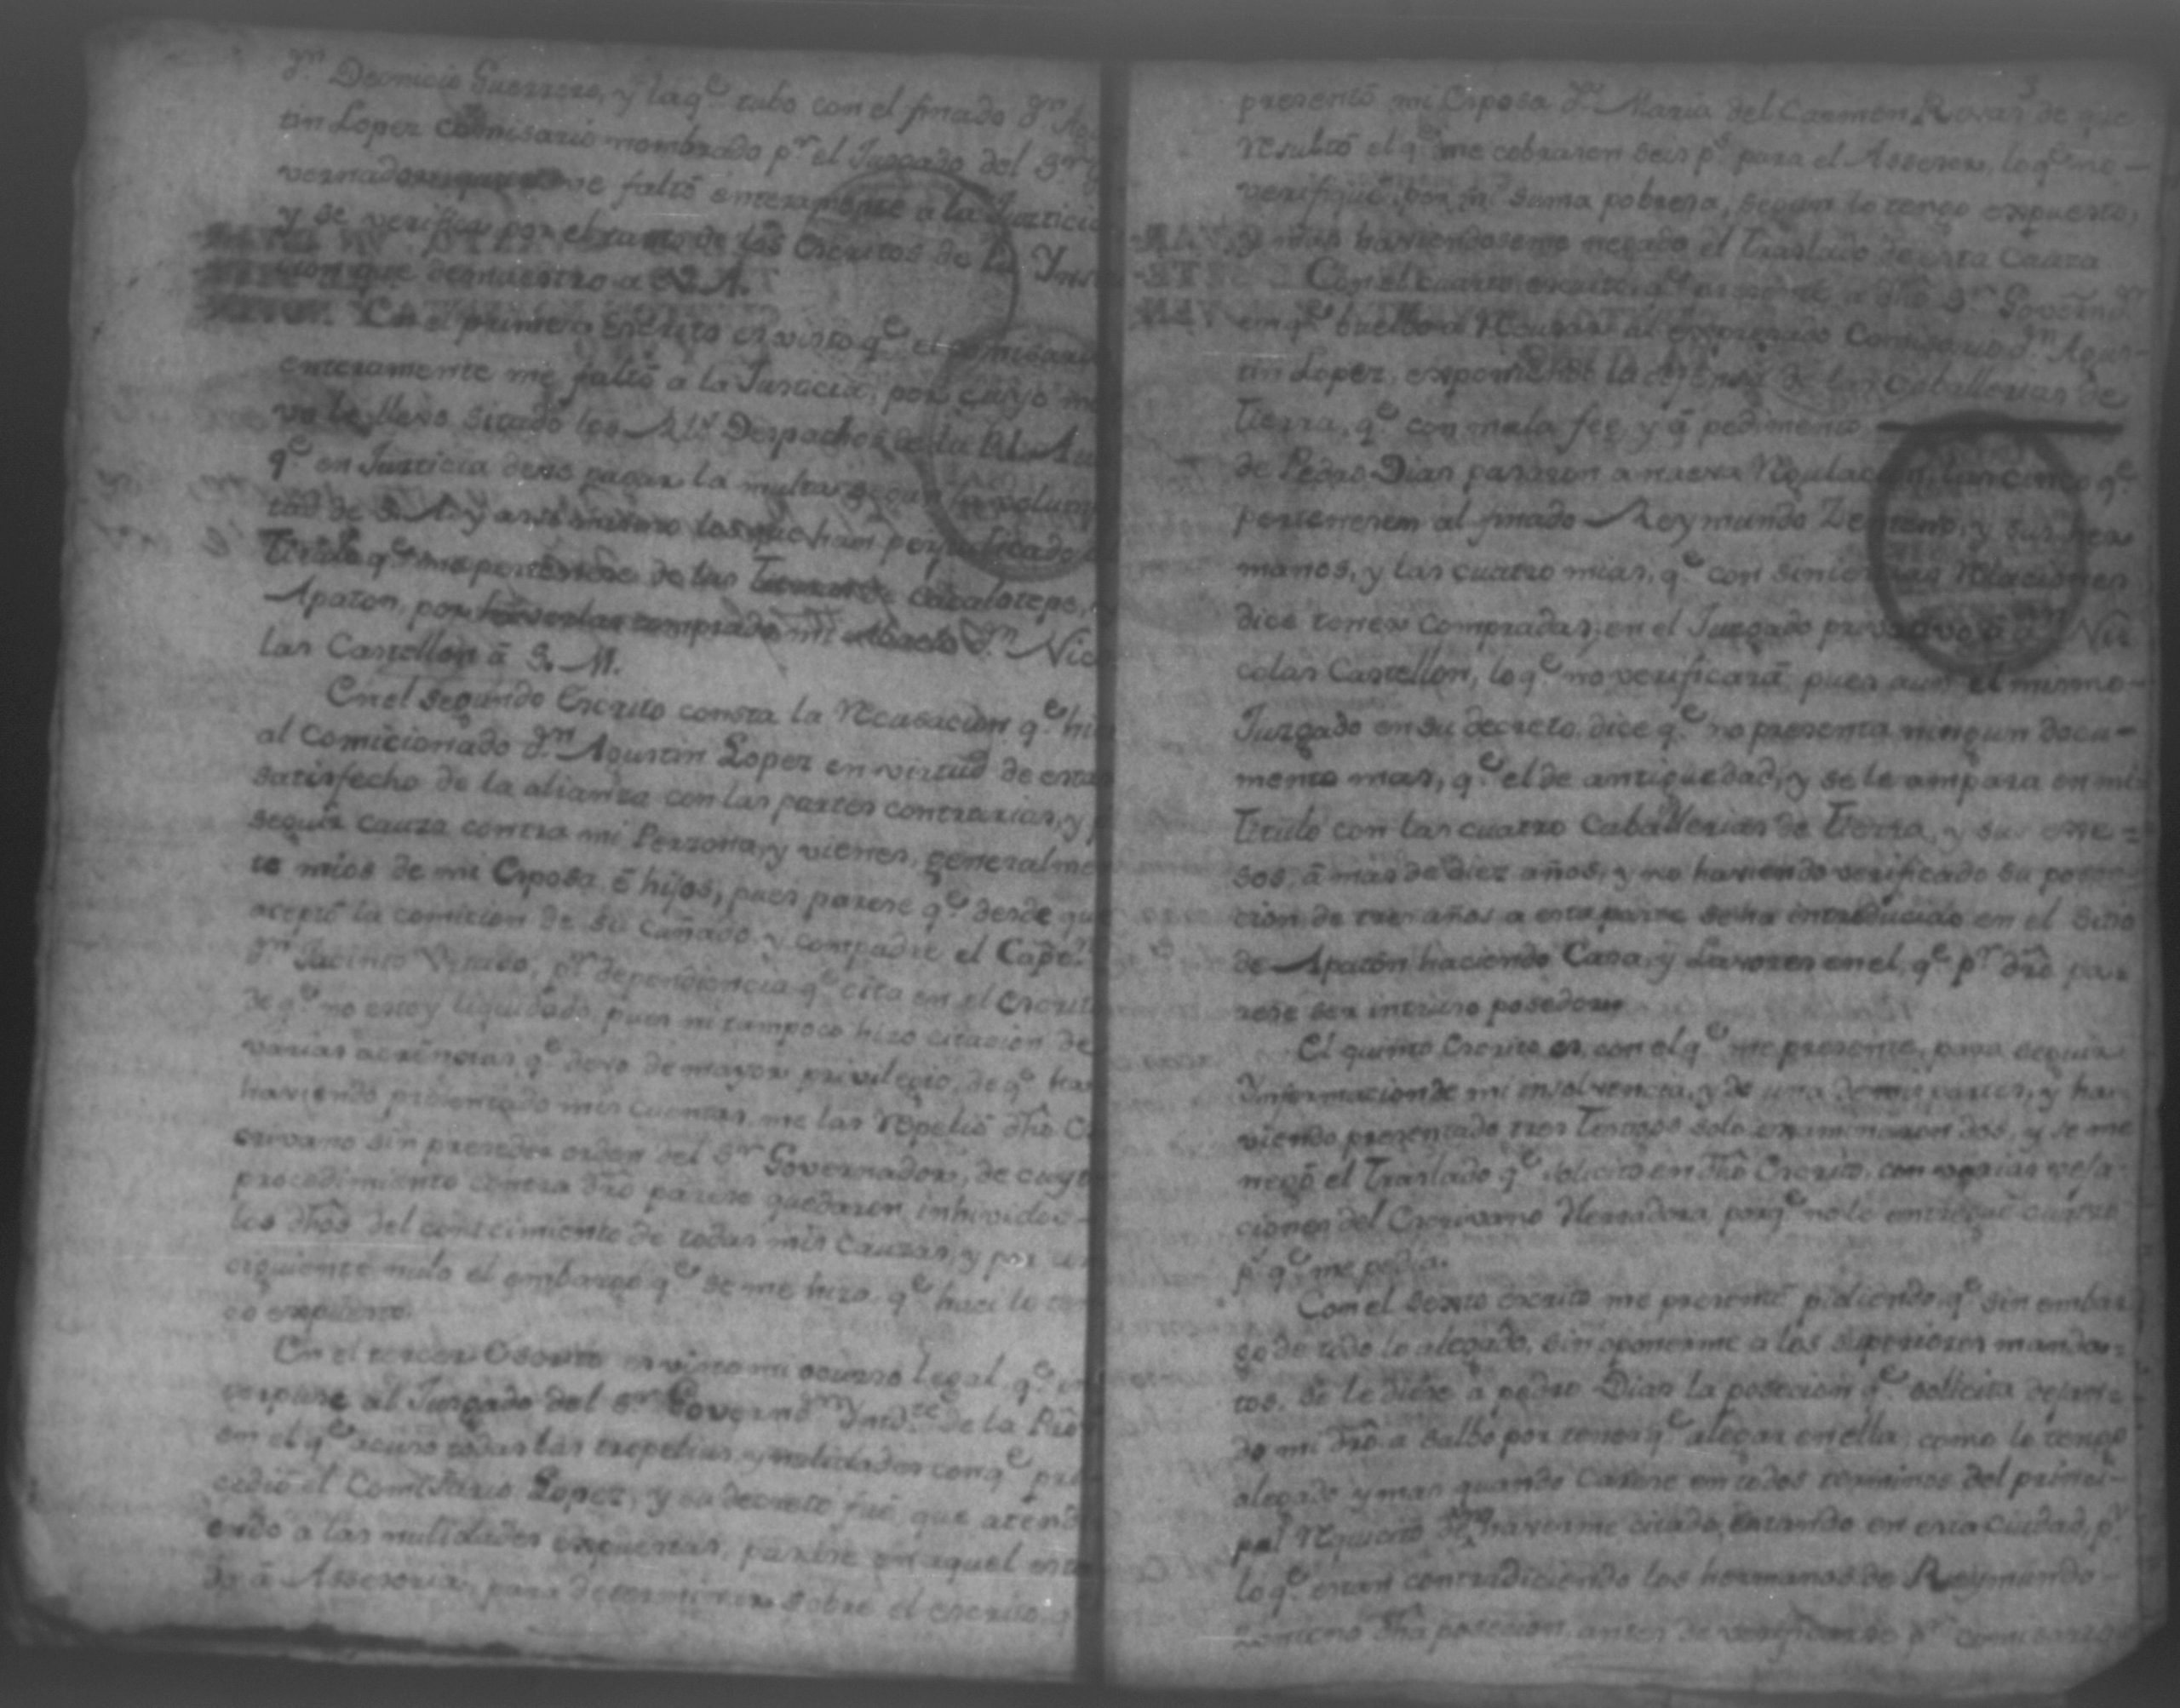 Dn Deonicio Guerrero, y la qe tubo con el finado Dn Agu
tin Lopez comisario nombrado pr el Juzgado del Sr G
vernador me faltó enteramente a la Justicia
y se verifica por el tanto de los Escritos de la Ynst
cion que demuestro a V. A.
En el primero Escrito es visto qe el comisario
enteramente me faltó a la Justicia, por cuyo mo
vo le llevo sitado los Rls Despachos de la Rl Au
qe en Justicia deve pagar la multa segun la volun
tad de S. A. y assi mismo los que han perjudicado
Titulo qe me pertenece de las Cacalotepe,
Apazon, por haverlas comprado mi Abuelo Dn Nico
las Castellon á S. M.
En el segundo Escrito consta la Recusacion qe hi
al Comicionado Dn Agustin Lopez en virtud de estar
satisfecho de la alianza con las partes contrarias, y p
seguir cauza contra mi Perzona, y vienes, generalme
te mios de mi Esposa é hijos, pues parese qe desde que
aceptó la comicion de su Cuñado y compadre el Capn
Dn Jacinto pr dependiencia qe cita en el Escrito
de qe no estoy liquidado, pues ni tampoco hizo citacion de
varias acrehencias qe devo de mayor privilegio, de qe
haviendo presentado mis cuentas, me las Repelió dho Es
crivano sin preceder orden del Sr Governador, de cuyo
procedimiento contra dro parese quedaron inhividos
los dhos del conocimiento de todas mis cauzas, y por con
siguiente nulo el embargo qe se me hizo, qe haci lo ten
go expuesto.
En el tercer Escrito es visto mi ocurso legal qe in
terpuse al Juzgado del Sr Governdr Yntdte de la Pro
en el qe acuso todas las tropelias y nulidades con qe pro
cedió el Comisario Lopez, y su decreto fué que atend
endo a las nulidades expuestas, pasase en aquel esta
do á Assesoria, para determinar sobre el escrito q
3
presentó mi Esposa Da Maria del Carmen Rovar de que
resultó el qe me cobrasen seis ps para el Assesor, lo qe no
verifiqué por mi suma pobreza, segun lo tengo expuesto,
y mas haviendoseme negado el Traslado de esta Cauza
Con el cuarto escrito, qe presenté a dho Sr Governdr
en qe buelbo a Recusar al expresado Comisario Dn Agus-
tin Lopez, exponiendo la de las Caballerias de
Tierra, qe con mala fee y á pedimento
de Pedro Dias pasaron a nueva Regulacion, las cinco qe
pertenesen al finado Reymundo Zenteno, y sus her
manos, y las cuatro mias, qe con Relaciones
dice tener compradas, en el Juzgado privativo á Dn Ni
colas Castellon, lo qe no verificará pues aun el mismo
Juzgado en su decreto, dice qe no presenta ningun docu-
mento mas, qe el de antiguedad, y se le ampara en mi
Titulo con las cuatro Caballerias de Tierra, y sus exce=
sos, á mas de diez años, y no haviendo verificado su pose-
cion de tres años a esta parte se ha introducido en el Sitio
de Apazon haciendo Casa, y Lavores en el, qe pr dro pa-
rese ser intruso posedor.
El quinto Escrito es, con el qe me presenté, para seguir
Ynformacion de mi insolvencia, y de una de mis partes, y ha
viendo presentado tres Testigos solo examinaron dos, y se me
negó el Traslado qe solicito en dho Escrito, con varias veja-
ciones del Escrivano Herradora, porqe no le entregué cuatro
ps qe me pedia.
Con el sexto escrito me presenté pidiendo, qe sin embar
go de todo lo alegado, sin oponerme a los superiores manda-
tos, se le diese á pedro Dias la posecion qe sollicita dejan-
do mi dro a salbo por tener qe alegar en ella, como lo tengo
alegado y mas quando Carese en todos terminos del princi-
pal Requicito de haverme citado, estando en esta Ciudad, pr
lo qe estan contradiciendo los hermanos de Reymundo
Zenteno dha posecion antes de verificarse pr comisario